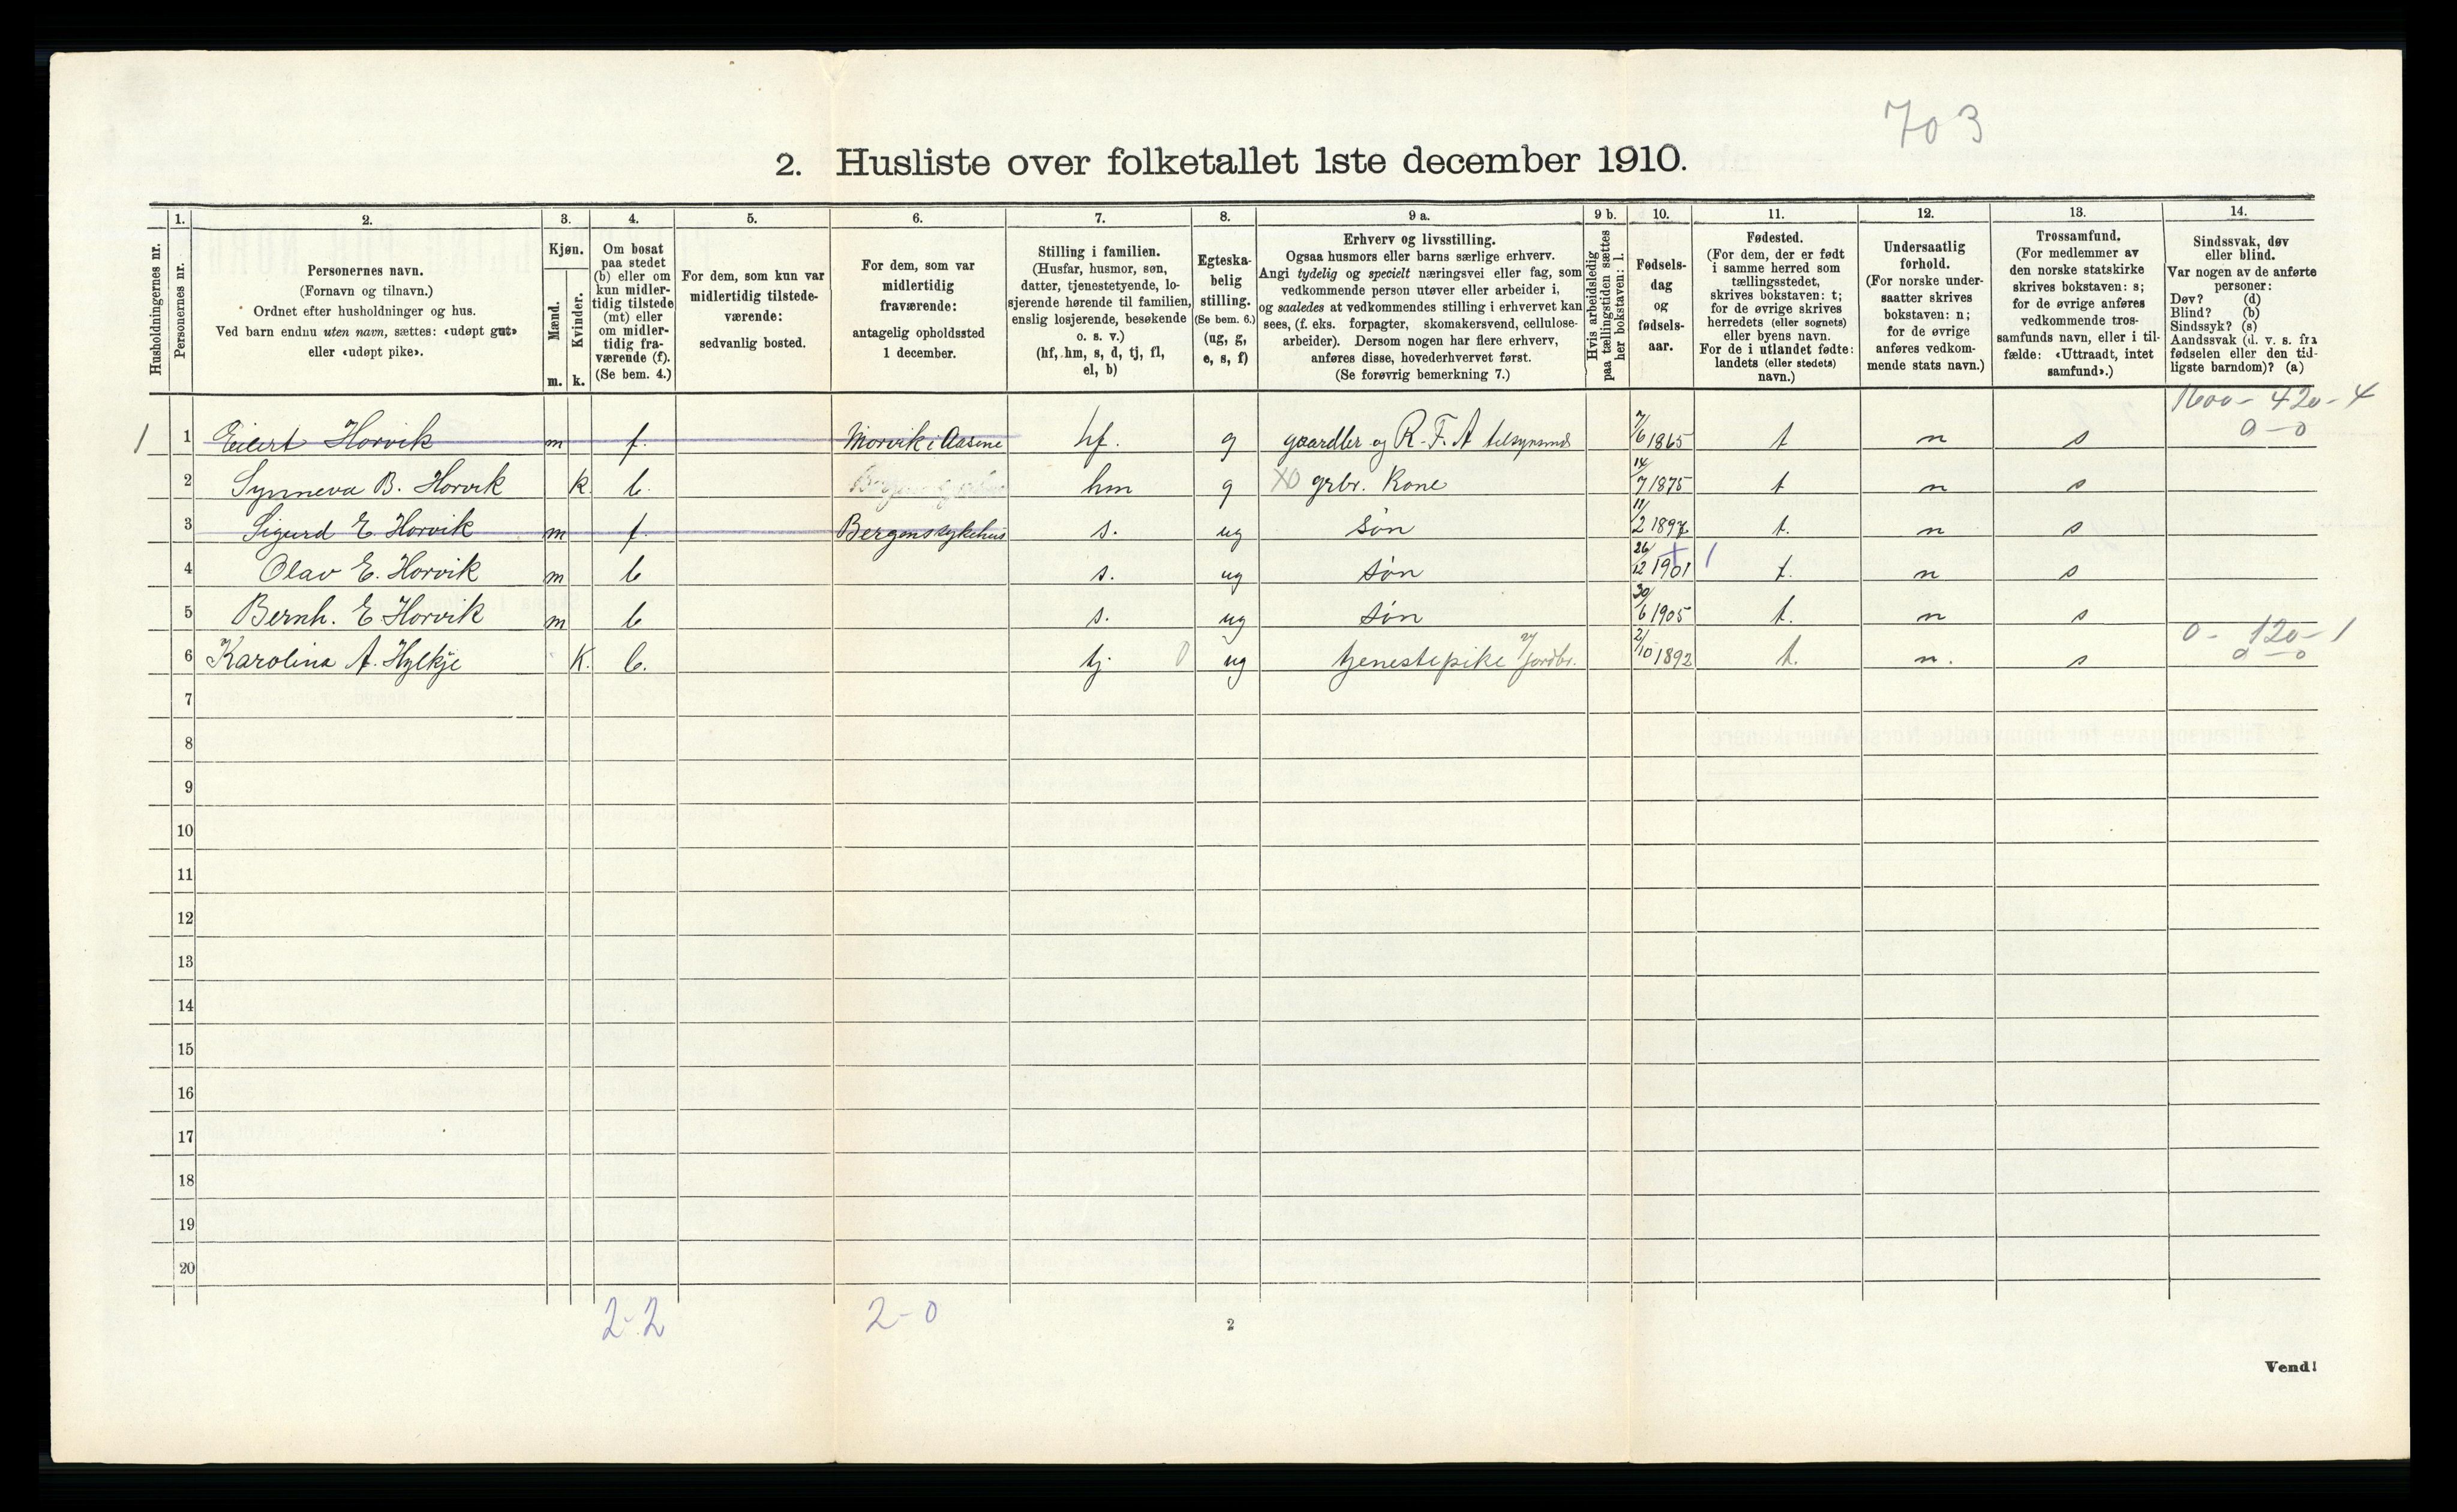 703
2. Husliste over folketallet 1ste december 1910.
Husholdningernes nr.
1.
Personernes nr.
2.
Personernes navn.
(Fornavn og tilnavn.)
Ordnet efter husholdninger og hus.
Ved barn endnu uten navn, sættes: «udøpt gut»
eller «udøpt pike».
3.
Kjøn.
Mænd.
Kvinder.
m. k.
4.
Om bosat
paa stedet
(b) eller om
kun midler-
tidig tilstede
(mt) eller
om midler-
tidig fra-
værende (f).
(Se bem. 4.)
5.
For dem, som kun var
midlertidig tilstede-
værende:
sedvanlig bosted.
6.
For dem, som var
midlertidig
fraværende:
antagelig opholdssted
1 december.
7.
Stilling i familien.
(Husfar, husmor, søn,
datter, tjenestetyende, lo-
sjerende hørende til familien,
enslig losjerende, besøkende
o. s. v.)
(hf, hm, s, d, tj, fl,
el, b)
8.
Egteska-
belig
stilling.
(Se bem. 6.)
(ug, g,
e, s, f)
9 a.
Erhverv og livsstilling.
Ogsaa husmors eller barns særlige erhverv.
Angi tydelig og specielt næringsvei eller fag, som
vedkommende person utøver eller arbeider i,
og saaledes at vedkommendes stilling i erhvervet kan
sees, (f. eks. forpagter, skomakersvend, cellulose-
arbeider). Dersom nogen har flere erhverv,
anføres disse, hovederhvervet først.
(Se forøvrig bemerkning 7.)
9 b.
Hvis arbeidsledig
paa tællingstiden sættes
her bokstaven: l.
10.
Fødsels-
dag
og
fødsels-
aar.
11.
Fødested.
(For dem, der er født
i samme herred som
tællingsstedet,
skrives bokstaven: t;
for de øvrige skrives
herredets (eller sognets)
eller byens navn.
For de i utlandet fødte:
landets (eller stedets)
navn.)
12.
Undersaatlig
forhold.
(For norske under-
saatter skrives
bokstaven: n;
for de øvrige
anføres vedkom-
mende stats navn.)
13.
Trossamfund.
(For medlemmer av
den norske statskirke
skrives bokstaven: s;
for de øvrige anføres
vedkommende tros-
samfunds navn, eller i til-
fælde: «Uttraadt, intet
samfund».)
14.
Sindssvak, døv
eller blind.
Var nogen av de anførte
personer:
Døv? (d)
Blind? (b)
Sindssyk? (s)
Aandssvak (d. v. s. fra
fødselen eller den tid-
ligste barndom)? (a)
1600 - 420 - 4
1 1 Eilert Horvik m f. Morvik i Aasene hf. g gaardbr og R. F. A tilsynsmd 7/6 1865 t n s 0 - 0
2 Synneva B. Horvik k b. hm g X0 grbr. Kone 14/7 1875 t n s
3 Sigurd E. Horvik m f. Bergens sykehus s. ug søn 11/2 1897 t. n s
4 Olav E. Horvik m b s. ug søn 26/12 1901 1 t. n s
5 Bernh. E. Horvik m b s. ug søn 30/6 1905 t. n s
6 Karolina A. Hylkje K. b. tj. 0 ug tjenestepike v/ jordbr. 2/10 1892 t. n. s 0 - 120 - 1
0 - 0
7
8
9
10
11
12
13
14
15
16
17
18
19
20
2-2 2-0
2
Vend!